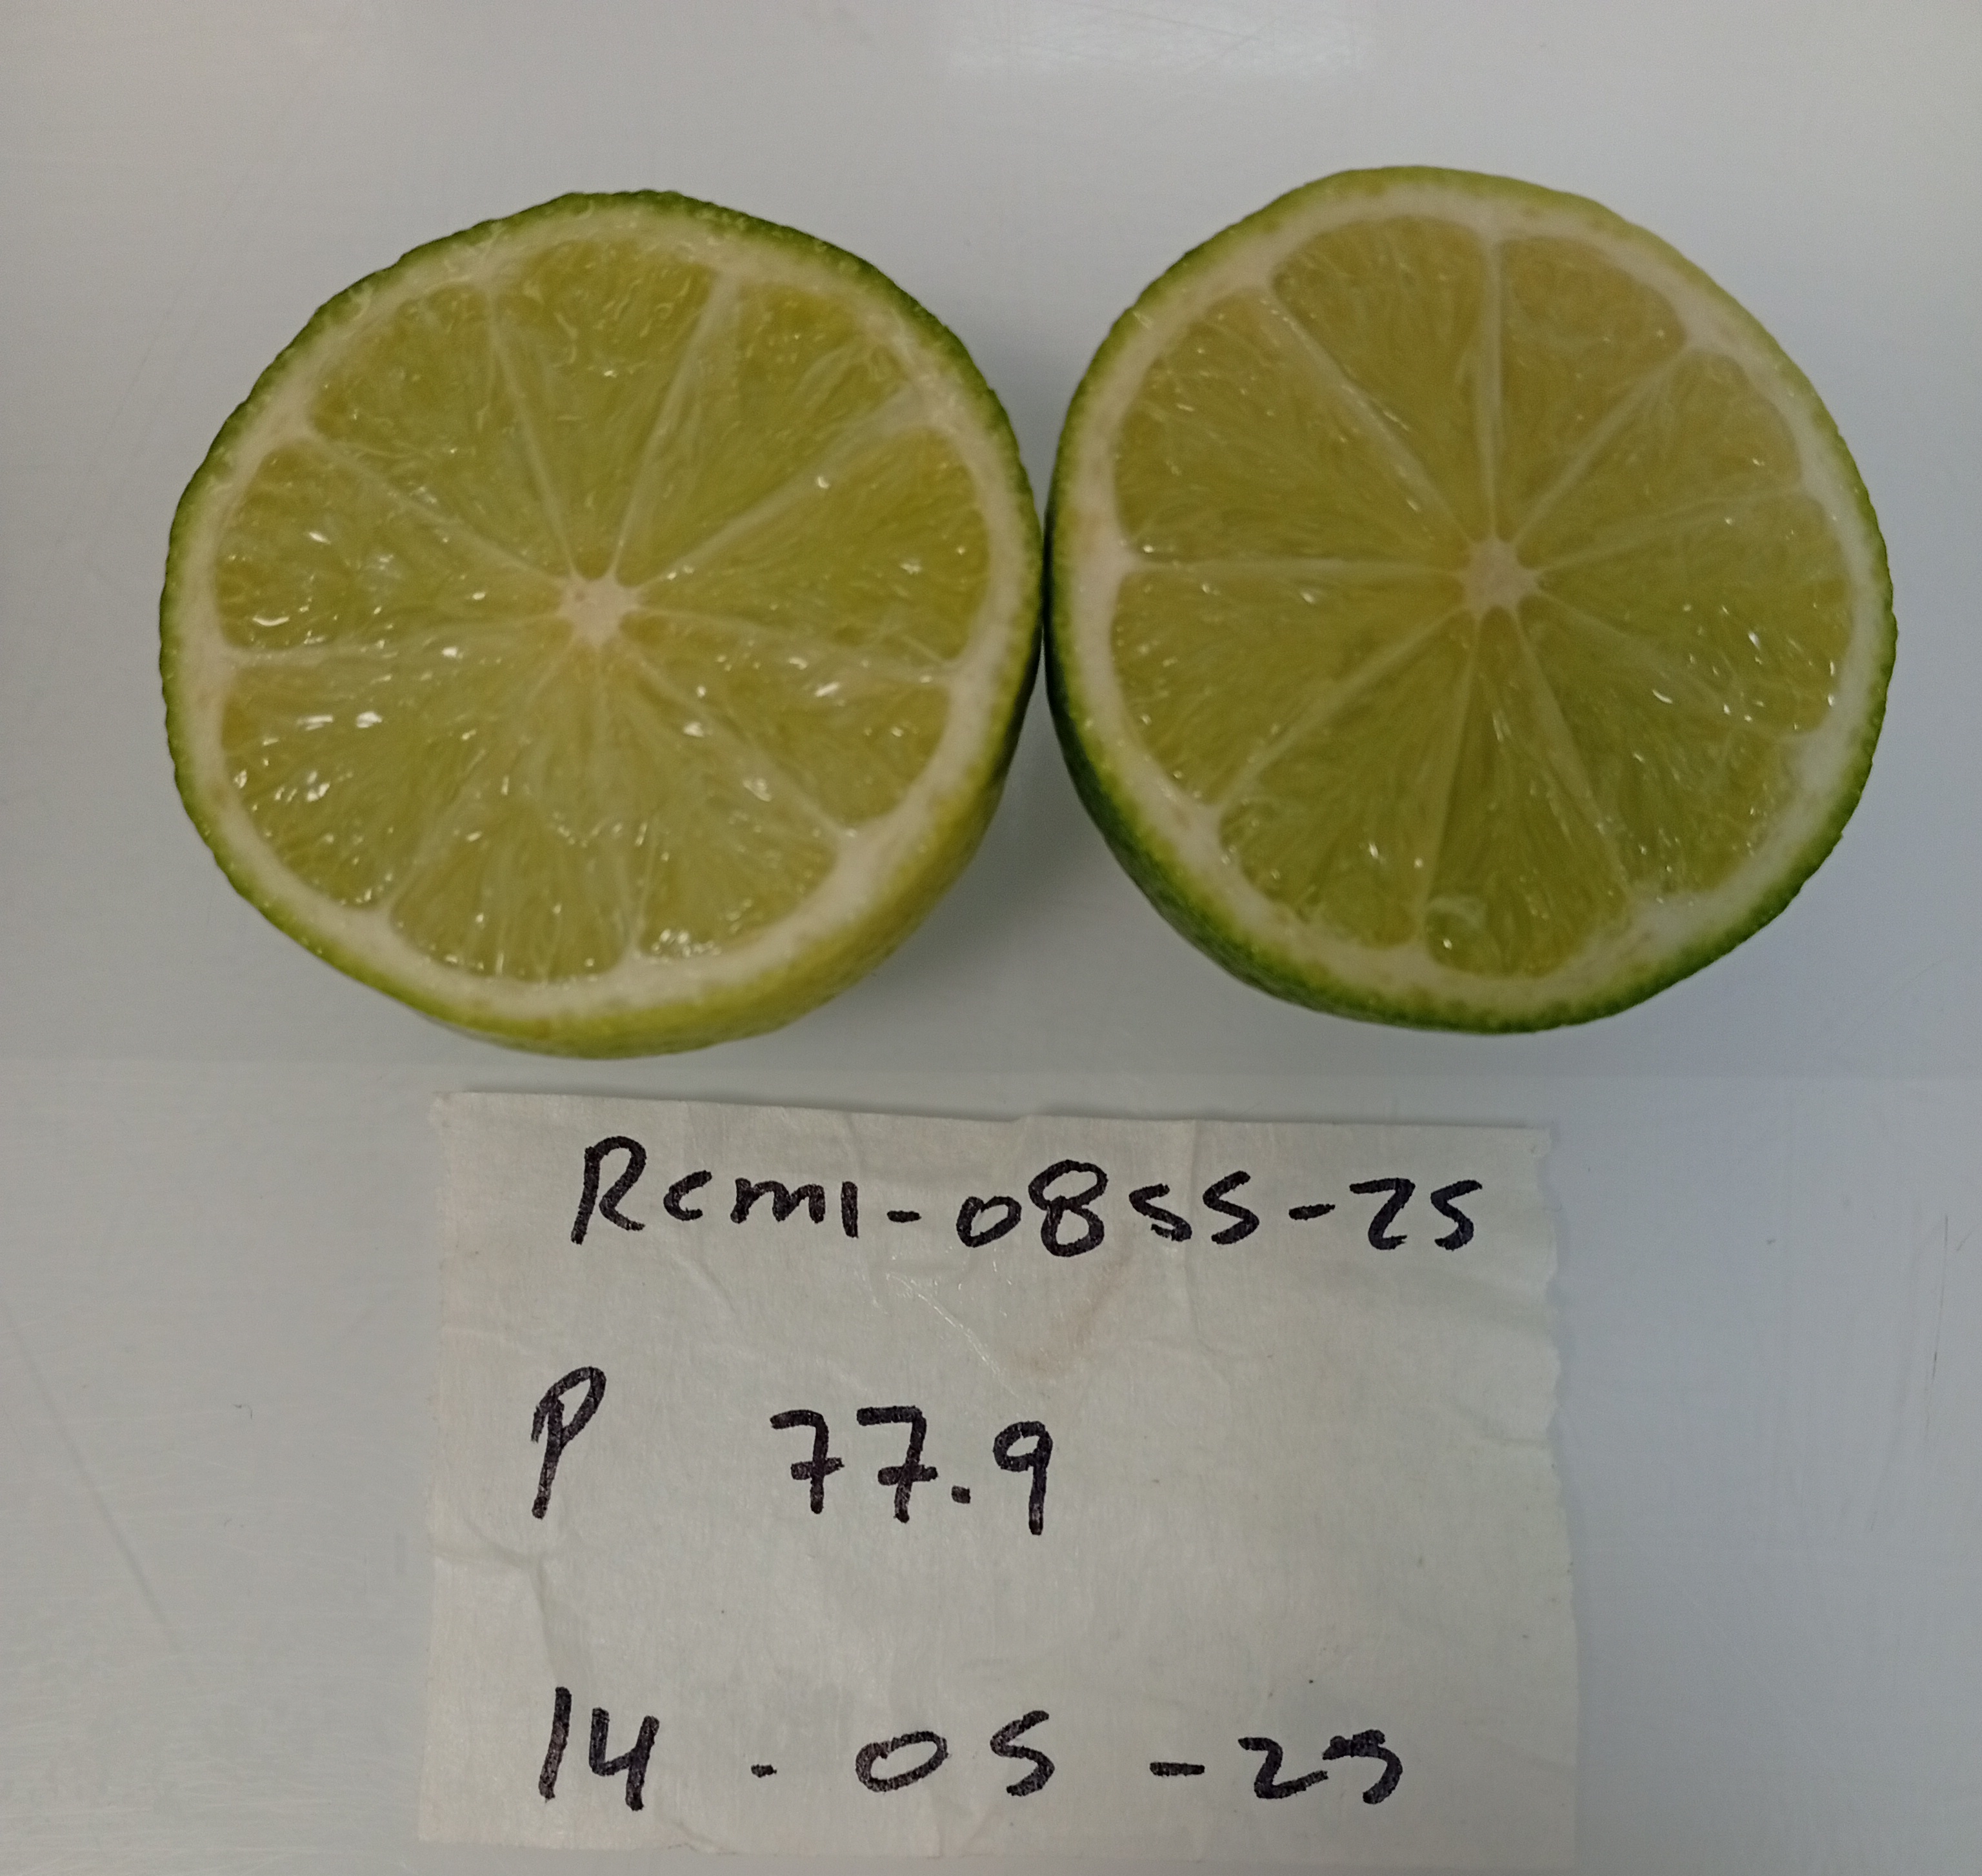 Rcml-0855-25
P 77.9
14-05-25